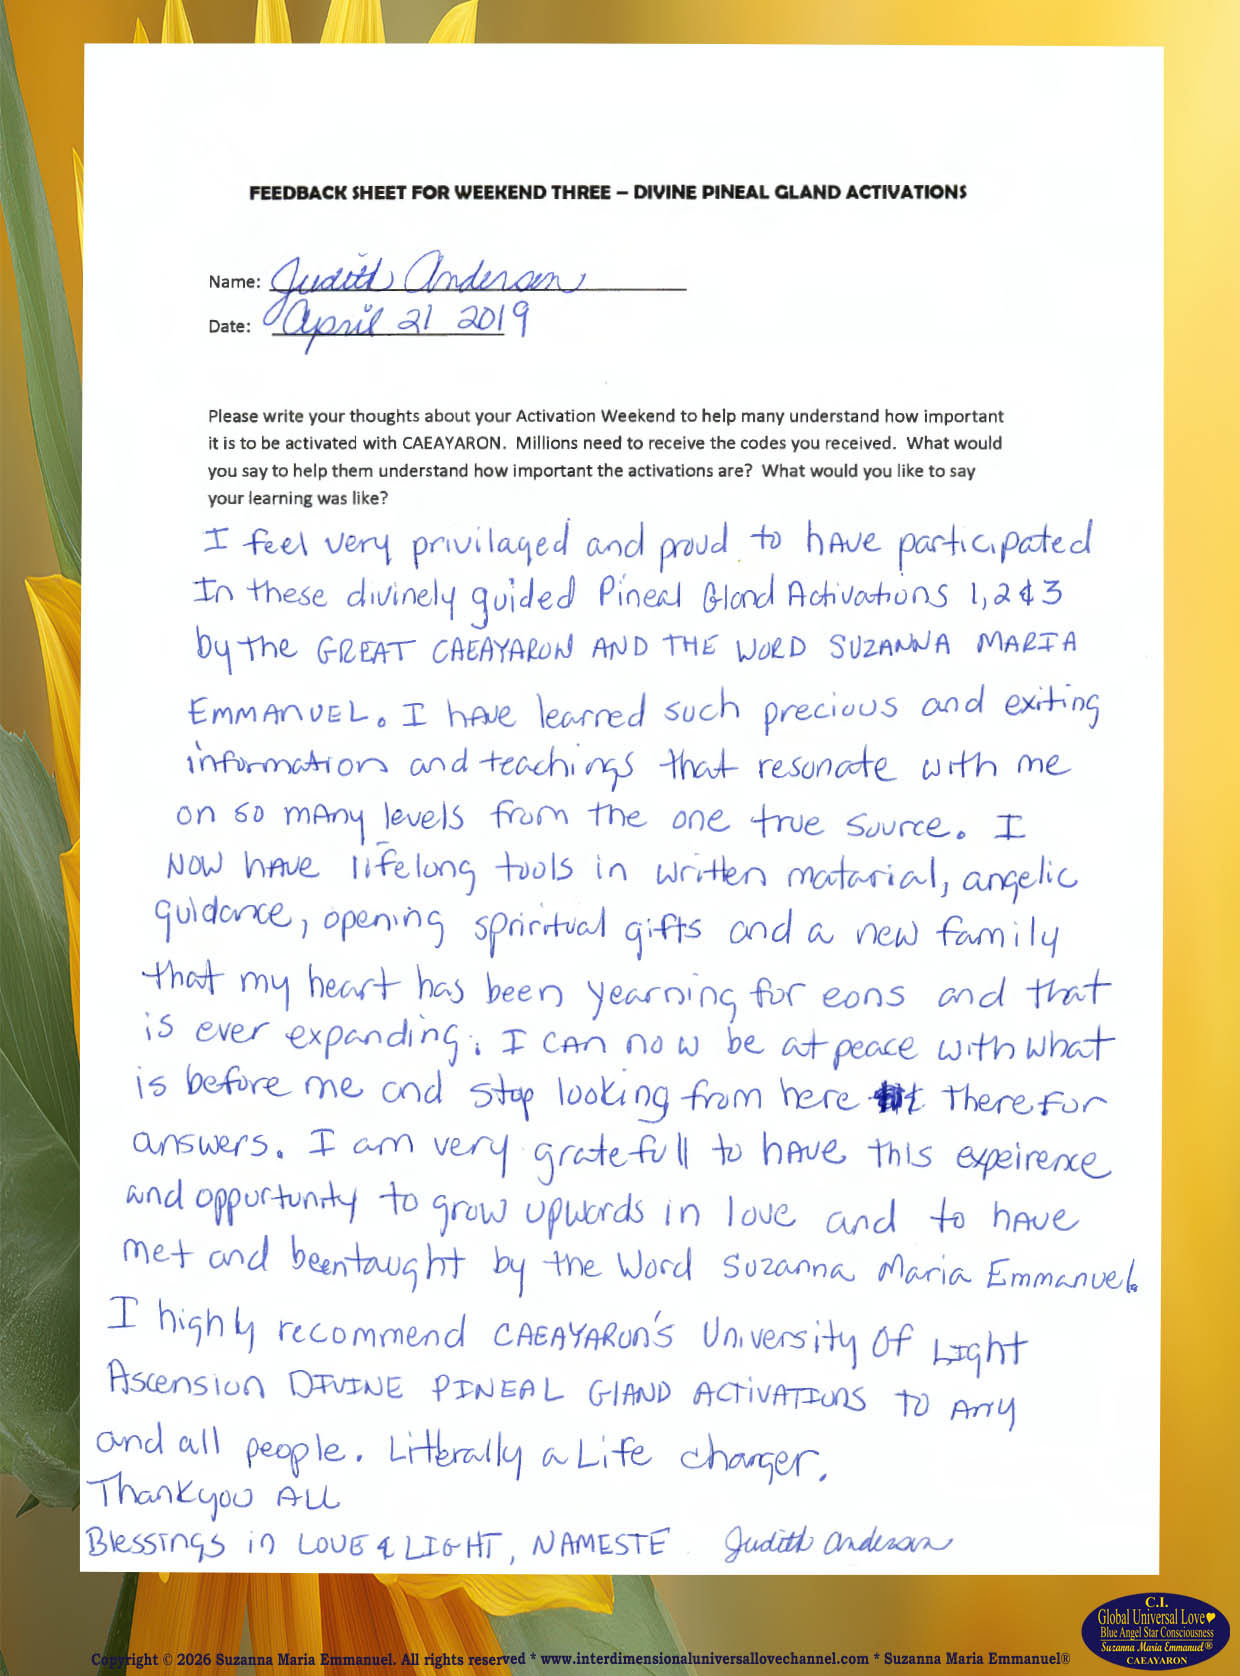 FEEDBACK SHEET FOR WEEKEND THREE – DIVINE PINEAL GLAND ACTIVATIONS
Name: Judith Anderson
Date: April 21 2019
Please write your thoughts about your Activation Weekend to help many understand how important
it is to be activated with CAEAYARON. Millions need to receive the codes you received. What would
you say to help them understand how important the activations are? What would you like to say
your learning was like?
I feel very privilaged and proud to have participated
In these divinely guided Pineal Gland Activations 1, 2 & 3
by the GREAT CAEAYARON AND THE WORD SUZANNA MARIA
EMMANUEL. I have learned such precious and exiting
information and teachings that resonate with me
on so many levels from the one true source. I
Now have lifelong tools in written matarial, angelic
guidance, opening spriritual gifts and a new family
that my heart has been yearning for eons and that
is ever expanding. I can now be at peace with what
is before me and stop looking from here t there for
answers. I am very gratefull to have this expeirence
and opportunity to grow upwards in love and to have
met and been taught by the Word Suzanna Maria Emmanuel.
I highly recommend CAEAYARON'S University Of Light
Ascension DIVINE PINEAL GLAND ACTIVATIONS TO Any
and all people. Litterally a Life changer.
Thankyou ALL
Blessings in LOVE & LIGHT, NAMESTE Judith Anderson
C.I.
Global Universal Love
Blue Angel Star Consciousness
Suzanna Maria Emmanuel®
CAEAYARON
Copyright © 2026 Suzanna Maria Emmanuel. All rights reserved * www.interdimensionaluniversallovechannel.com * Suzanna Maria Emmanuel®